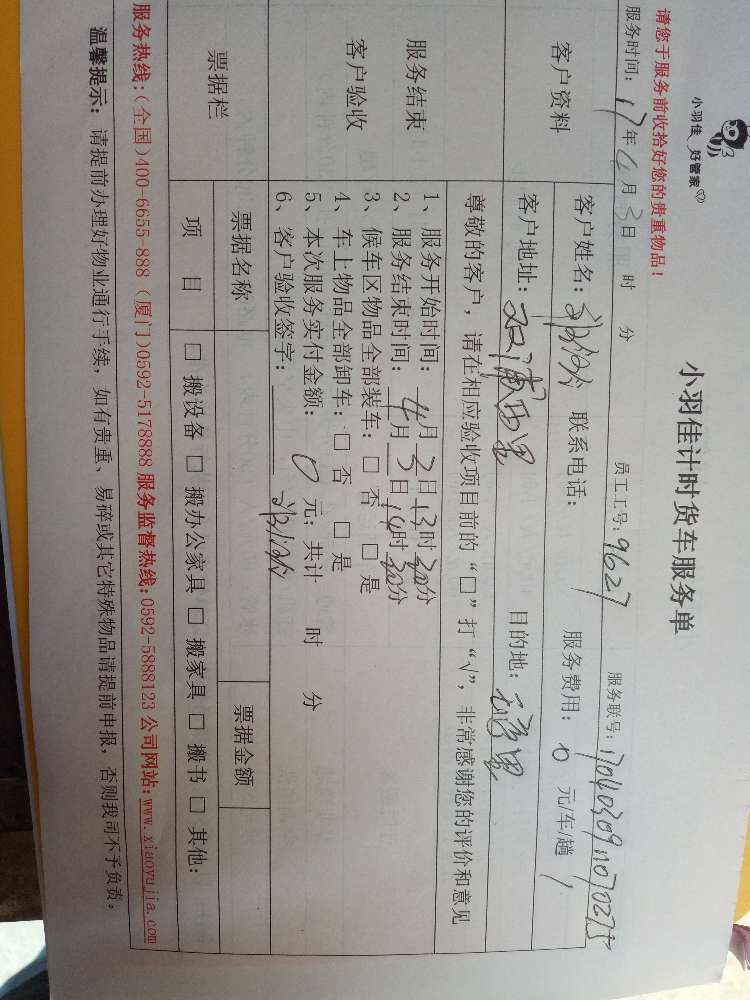 小羽佳 好管家
小羽佳计时货车服务单
请您于服务前收拾好您的贵重物品！
服务时间：17年4月3日 时 分 员工工号：9627 服务联号：
客户资料
客户姓名： 联系电话： 服务费用：0元/车/趟
客户地址： 目的地：
尊敬的客户，请在相应验收项目前的“□”打“√”，非常感谢您的评价和意见
服务结束
客户验收
1、服务开始时间：4月3日13时30分
2、服务结束时间：4月3日14时30分
3、候车区物品全部装车：□ 否 □ 是
4、车上物品全部卸车：□ 否 □ 是
5、本次服务实付金额：0元；共计 时 分
6、客户验收签字：
票据栏
票据名称 票据金额
项 目 □ 搬设备 □ 搬办公家具 □ 搬家具 □ 搬书 □ 其他：
服务热线：（全国）400-6655-888（厦门）0592-5178888 服务监督热线：0592-5888123 公司网站：www.xiaoyujia.com
温馨提示：请提前办理好物业通行手续，如有贵重、易碎或其它特殊物品请提前申报，否则我司不予负责。